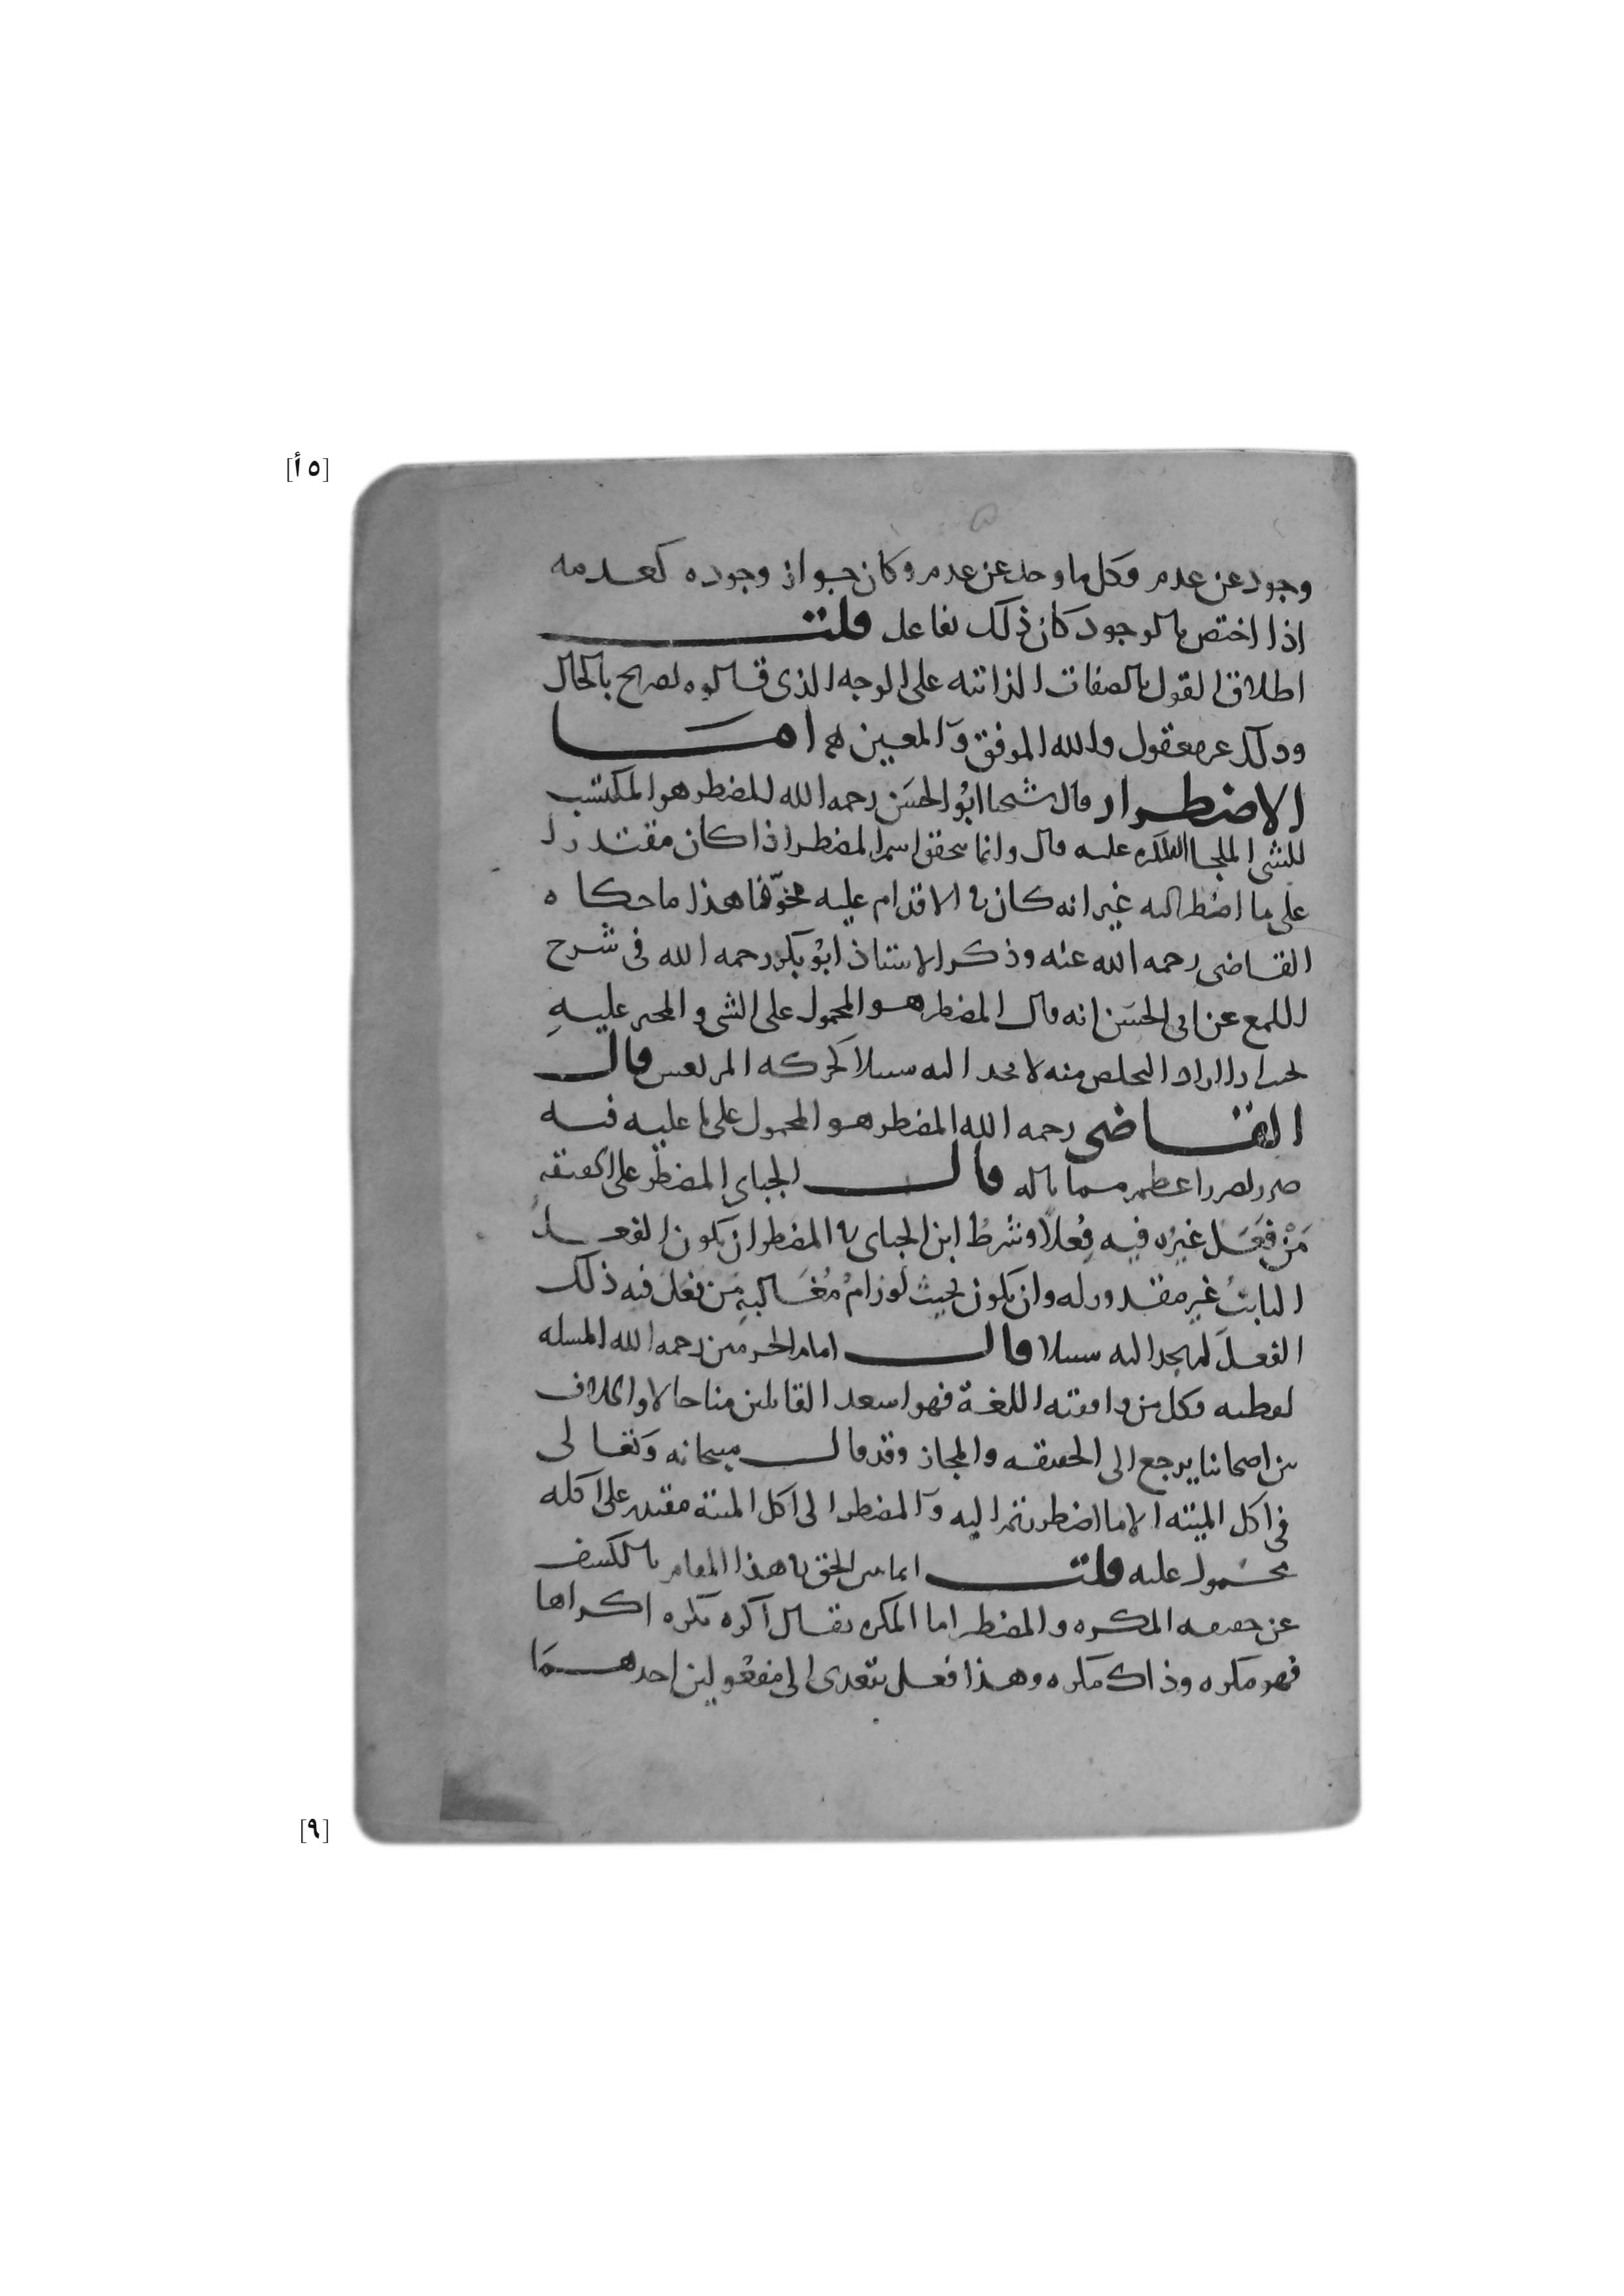 [٥ أ]
وجود عن عدم وكل ما وجد عن عدم وكان جواز وجوده كعدمه
اذا اختص بالوجود كان ذلك بفاعل قلت
اطلاق القول بالصفات الذاتية على الوجه الذي قالوه تصريح بالحال
وذلك غير معقول والله الموفق والمعين اما
الاضطرار قال شيخنا ابو الحسن رحمه الله المضطر هو المكتسب
للشي الملجا المكره عليه قال وانما يتحقق اسم المضطر اذا كان مقتدرا
على ما اضطر اليه غير انه كان في الاقدام عليه مخوفا هذا ما حكاه
القاضي رحمه الله عنه وذكر الاستاذ ابو بكر رحمه الله في شرح
اللمع عن ابي الحسن انه قال المضطر هو المحمول على الشي والمجبر عليه
لو اراد التخلص منه لا يجد اليه سبيلا كحركة المرتعش قال
القاضي رحمه الله المضطر هو المحمول على ما عليه فيه
ضرر لضرر اعظم مما ناله قال الجباي المضطر على الحقيقة
من فعل غيره فيه فعلا وشرط ابن الجباي في المضطر ان يكون الفعل
الثابت غير مقدور له وان يكون بحيث لو رام مغالبة من فعل فيه ذلك
الفعل لم يجد اليه سبيلا قال امام الحرمين رحمه الله المسلة
لفظية وكل من وافقته اللغة فهو اسعد القايلين منا حالا والخلاف
من اصحابنا يرجع الى الحقيقة والمجاز وقد قال سبحانه وتعالى
في اكل الميتة الا ما اضطررتم اليه والمضطر الى اكل الميتة مقتدر على اكله
محمول عليه قلت انما يبين الحق في هذا المقام بالكشف
عن حقيقة المكره والمضطر اما المكره يقال اكره يكره اكراها
فهو مكره وذاك مكره وهذا فعل يتعدى الى مفعولين احدهما
[٩]